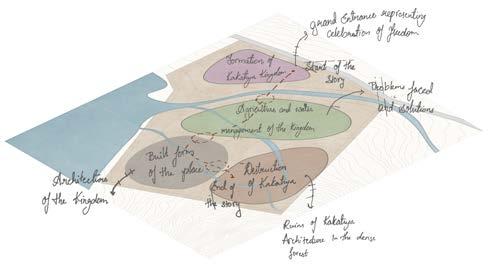 Grand Entrance representing
celebration of freedom
Formation of
Kakatiya Kingdom
Start of the
story
Problems faced
and solutions
Agriculture and water
management of the Kingdom
Built forms
of the place
Destruction
of Kakatiya
End of
the story
Architecture
of the Kingdom
Ruins of Kakatiya
Architecture in the dense
forest